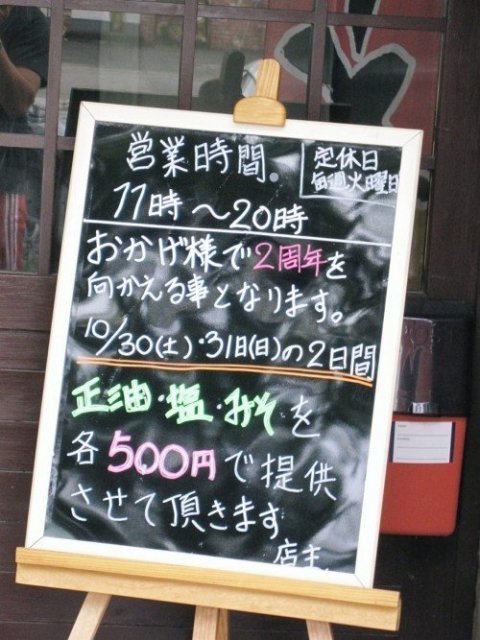 営業時間。
定休日
毎週火曜日
11時～20時
おかげ様で2周年を
向かえる事となります。
10/30(土)・31日(日)の2日間
正油・塩・みそを
各500円で提供
させて頂きます
店主